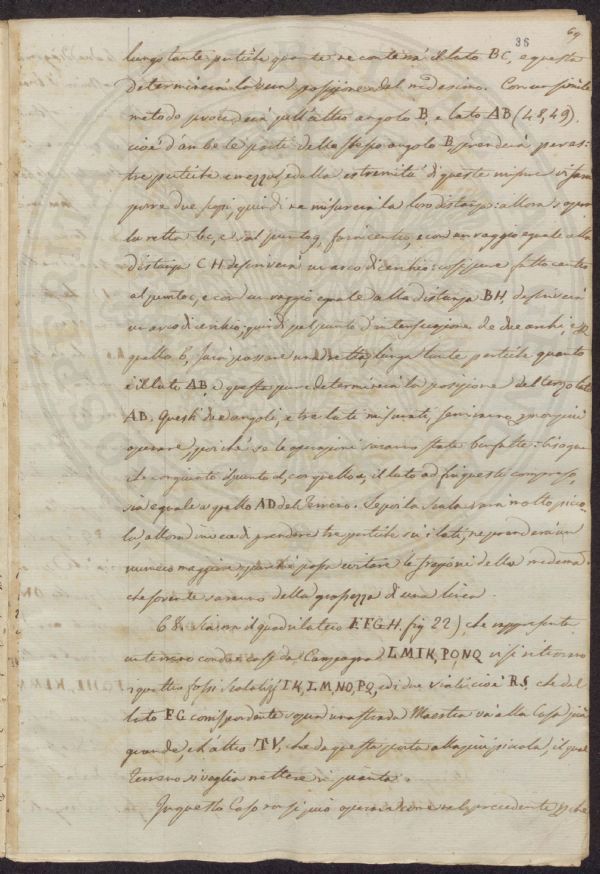 69
38
lungo tante particele quante ne conterrà il lato BC, e questa
determinerà la vera posizione del medesimo. Con un simile
metodo procederà nell'altro angolo B, e lato AB (48,49).
cioè d'ambe le parti dello stesso angolo B prenderà
tre particele e mezza, e dalla estremità di queste misure vi farà
porre due segni, quindi ne misurerà la loro distanza: allora sopra
la retta bc, e al punto g, farà centro, e con un raggio eguale alla
distanza CH descriverà un arco di cerchio: così pure fatto centro
al punto c, e con un raggio eguale alla distanza BH descriverà
un arco di cerchio, quindi pel punto d'intersecazione de due archi, e
quello b, farà passare una retta, lunga tante particele quanto
è il lato AB, e questa pure determinerà la posizione del terzo lato
AB. Questi due angoli, e tre lati misurati,
operare poiché se le operazioni saranno state ben fatte: bisogna
che congiunto il punto d, con quello a, il lato ad fra questi compreso,
sia eguale a quello AD del Terreno. Se poi la Scala sarà molto picco-
la, allora invece di prendere tre particele su i lati, ne prenderà un
numero maggiore, perché possa evitare le frazioni della medema
che sovente saranno della grossezza di una linea.
68. Siavi il quadrilatero EFGH. fig 22), che rappresenta
un terreno con due case da Campagna LMIK, PONQ vi si ritrovano
i quattro fossi Scolatizj IK, LM, NO, PQ, e di due viali cioè RS, che dal
lato FG corrispondente sopra una strada Maestra và alla Casa più
grande, e l'altro TV, che da questa porta alla più piccola, il qual
Terreno si voglia mettere in pianta.
In questo Caso non si può operare come nel precedente che